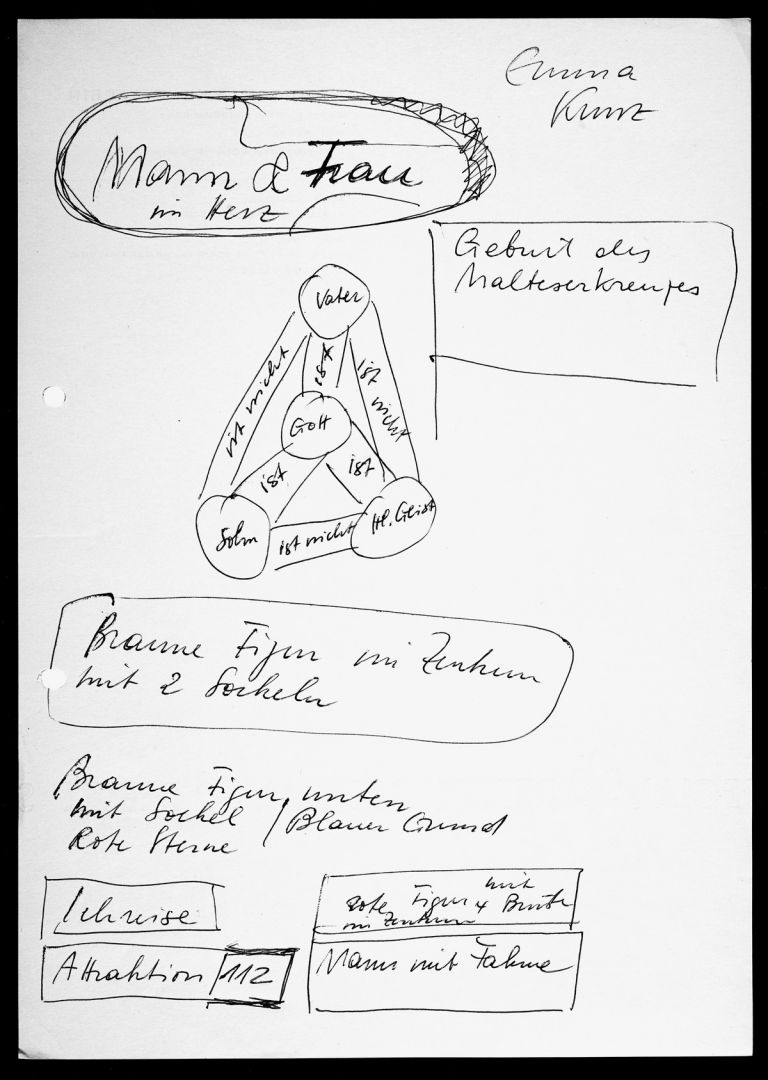 Emma
Kunz
Mann & Frau
im Herz
Geburt des
Malteserkreuzes
Vater
ist nicht
ist
ist nicht
Gott
ist
ist
Sohn
ist nicht
Hl. Geist
Braune Figur im Zentrum
mit 2 Sockeln
Braune Figur unten
mit Sockel / Blauer Grund
Rote Sterne
rote Figur mit
im Zentrum
Attraktion 112
Mann mit Fahne